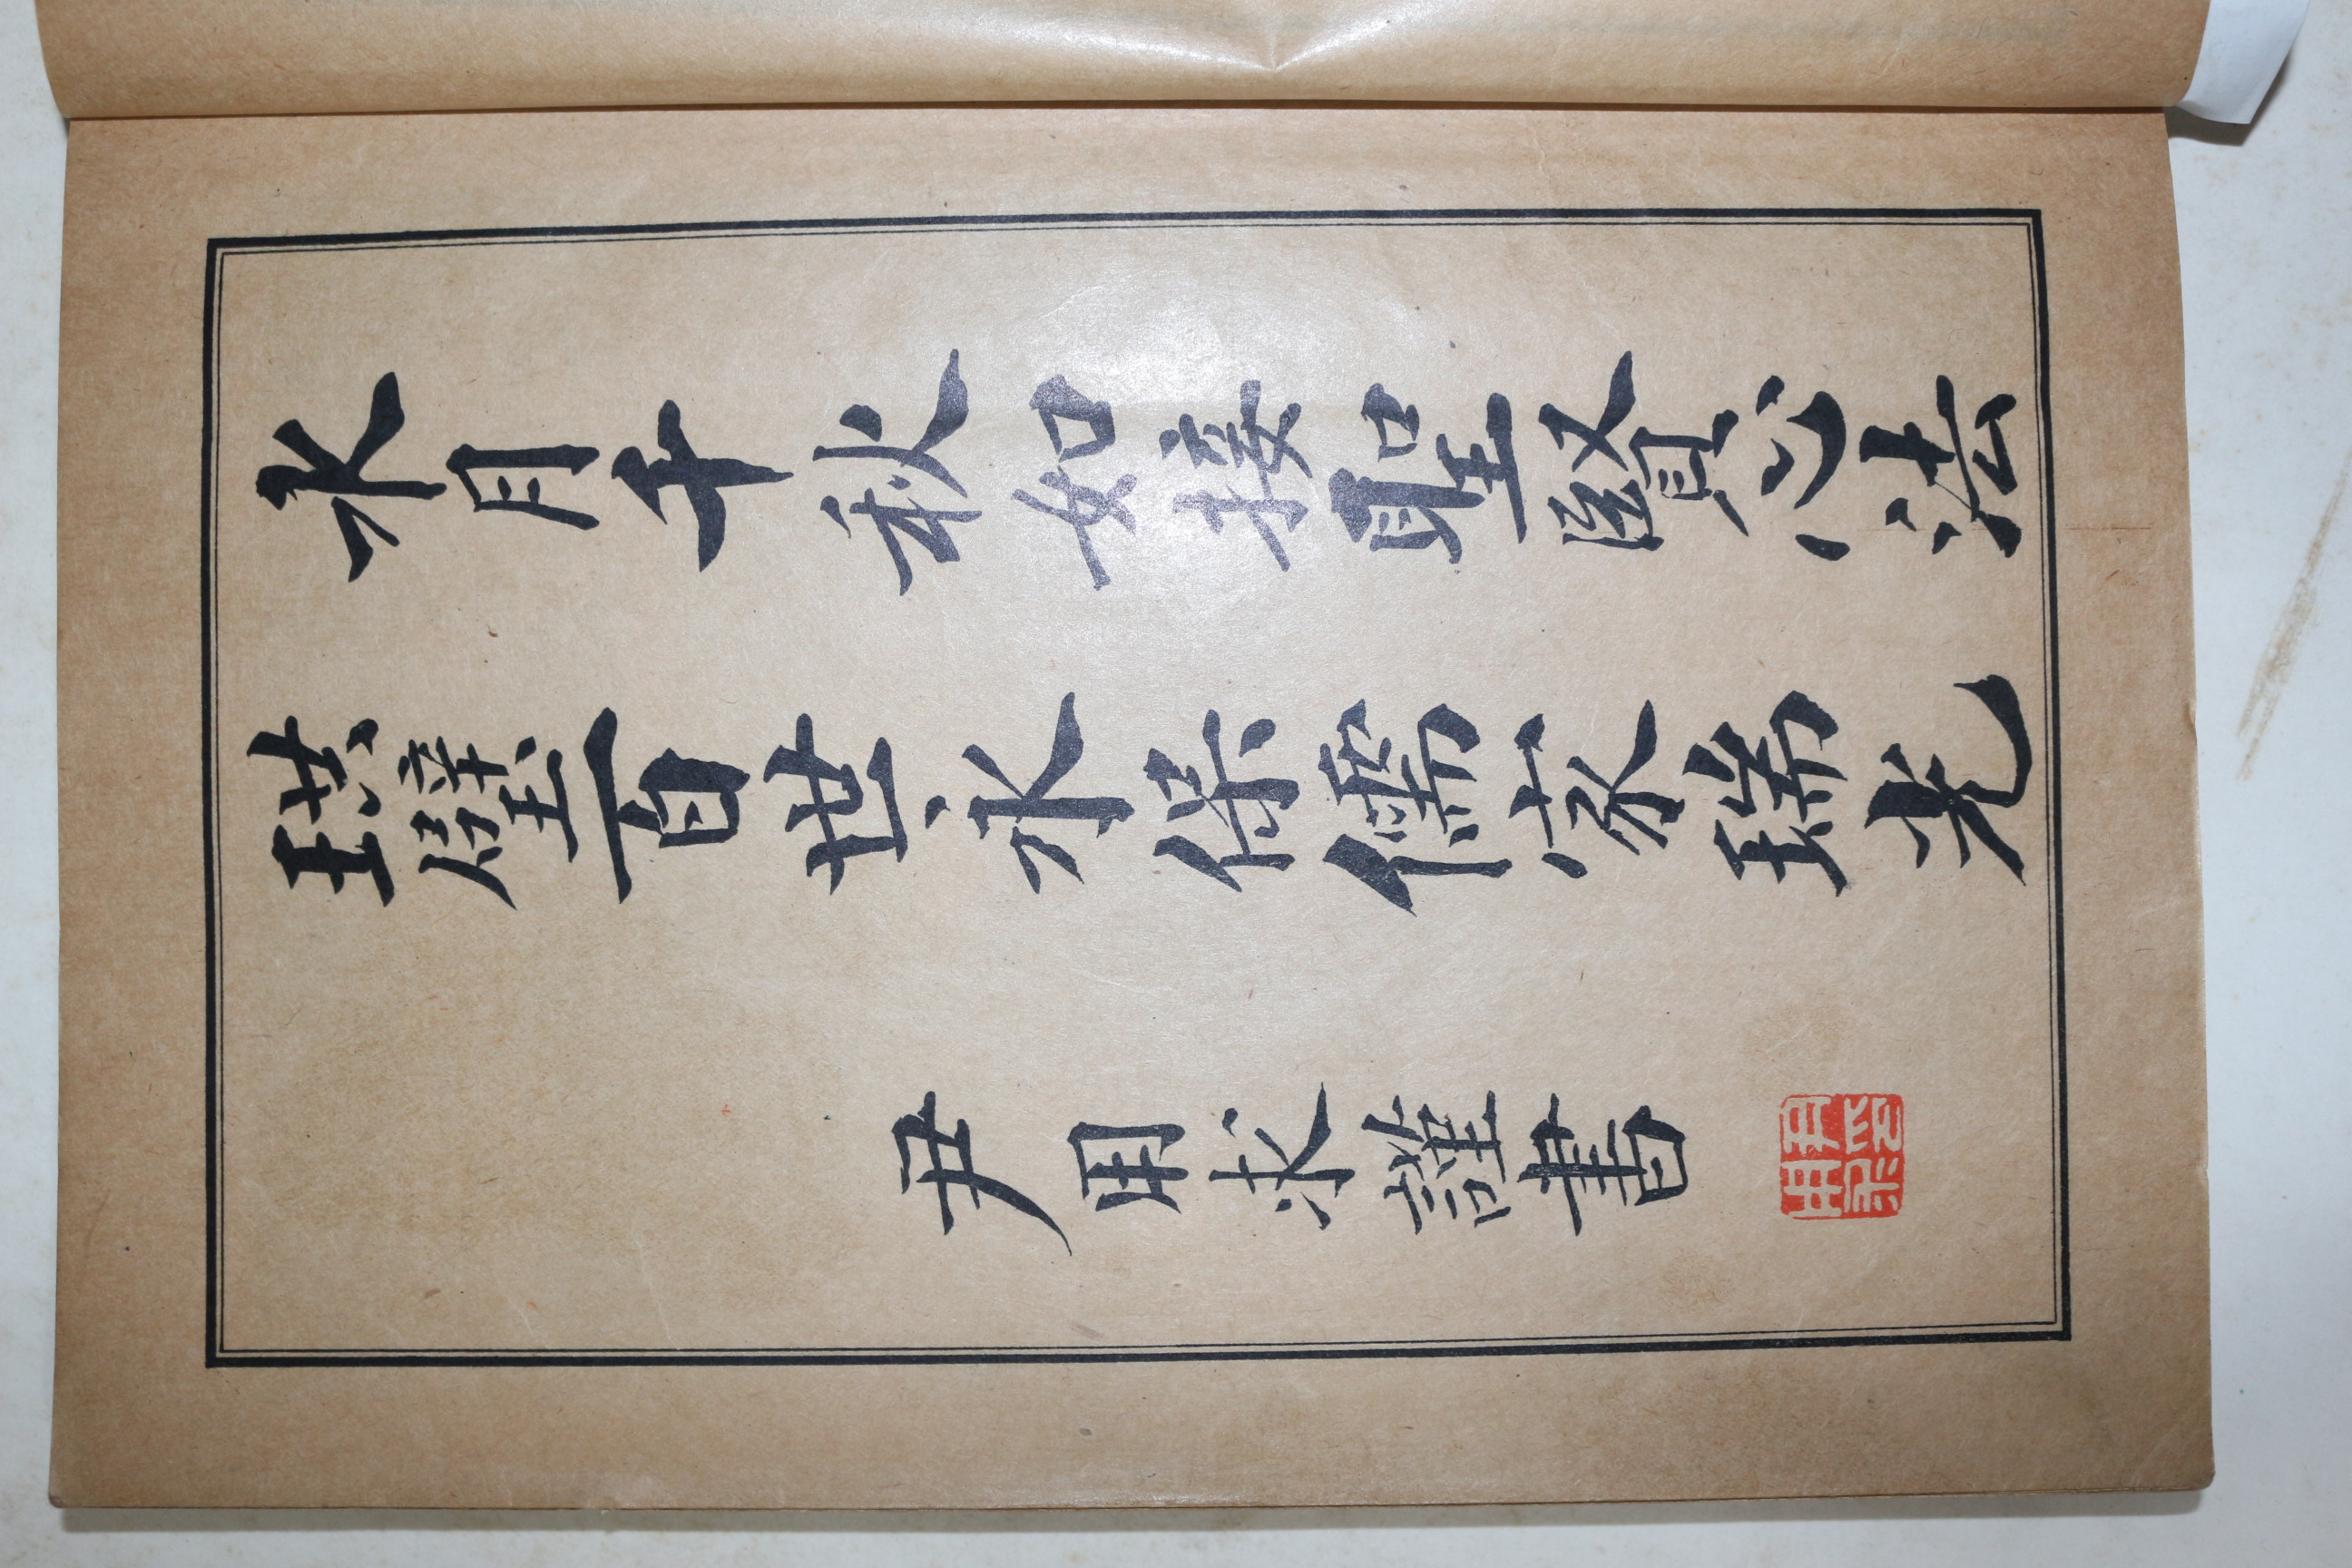 水月千秋如接聖賢心法
珙璧百世永保儒家瑞光
尹用求謹書
尹印用求